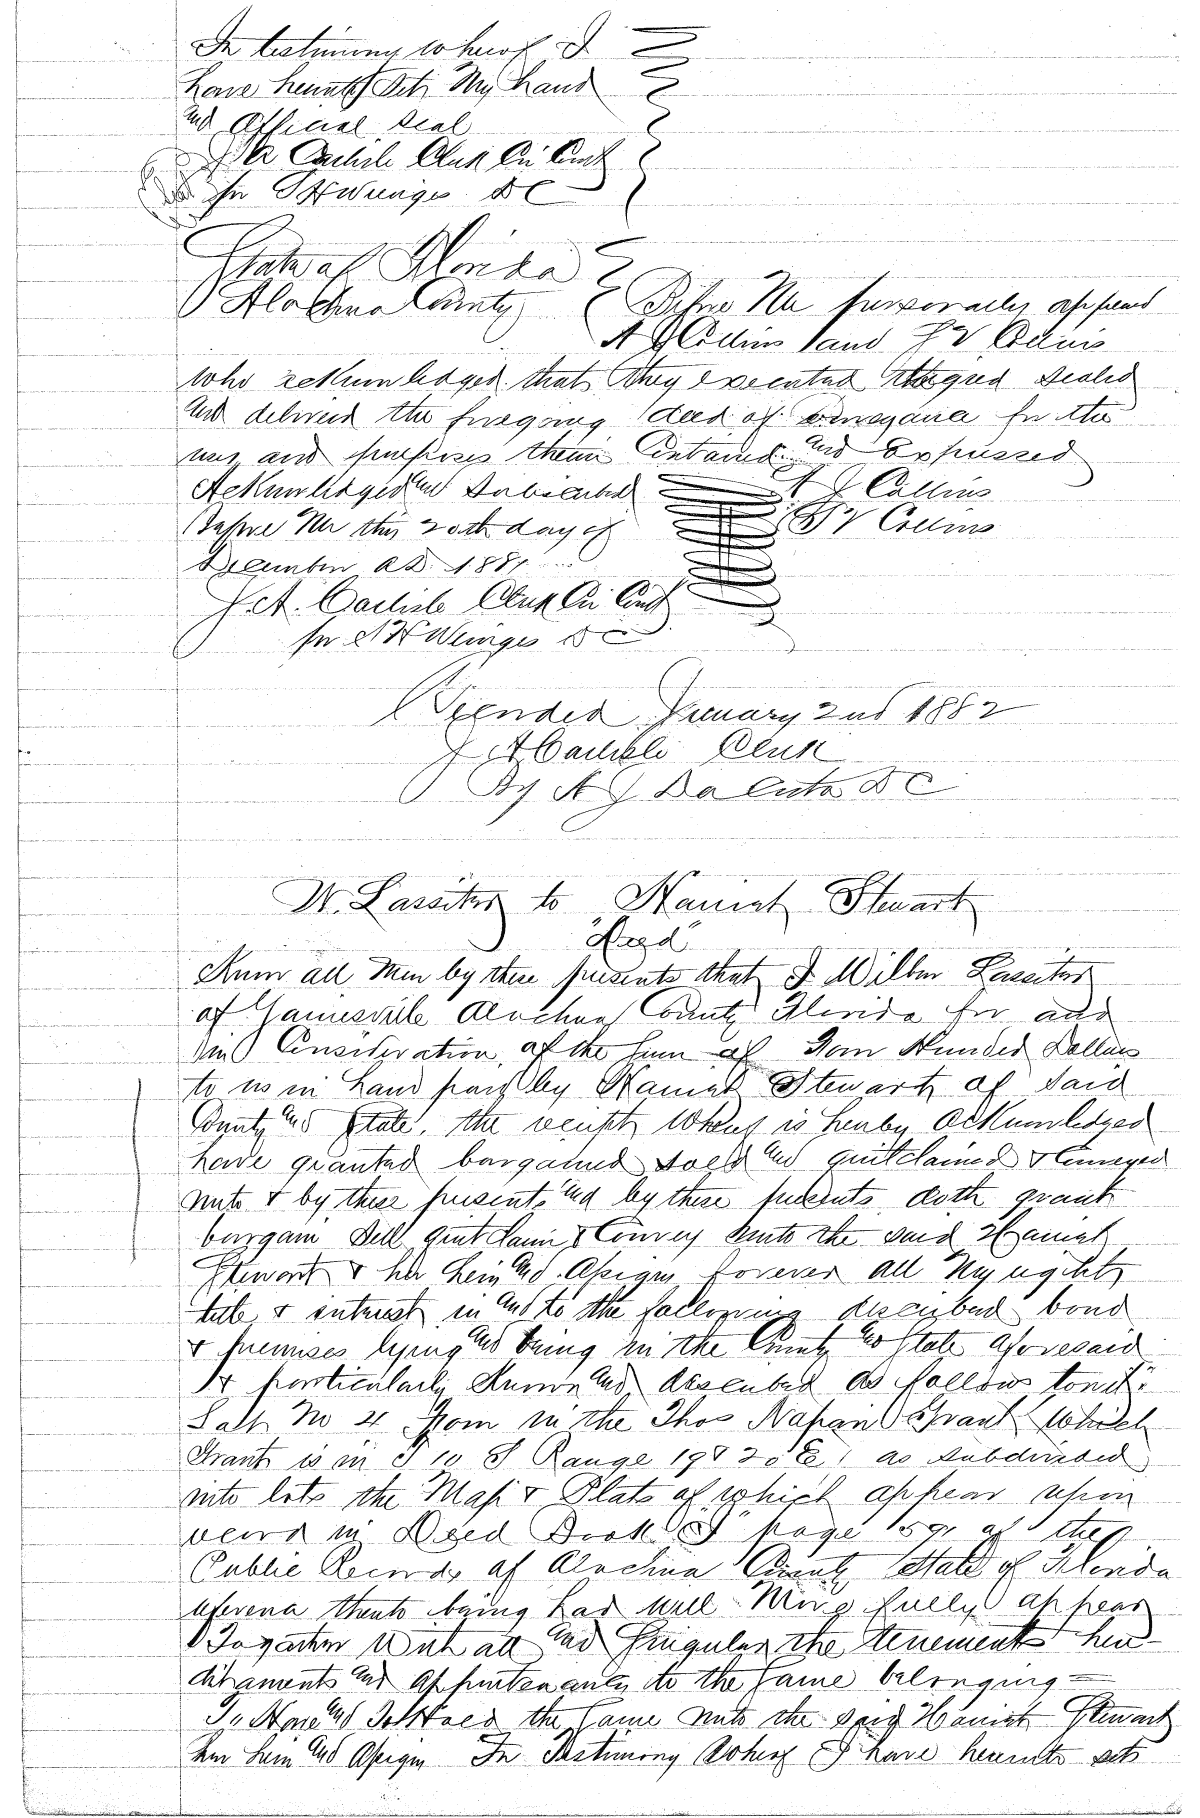 In testimony whereof I
have hereunto set my hand
and Official seal
J A Carlisle Clerk Cir Court
for S H Wienges D C
State of Florida
Alachua County Before Me personally appeared
A J Collins and F V Collins
who acknowledged that they executed signed sealed
and delivered the foregoing deed of conveyance for the
uses and purposes therein Contained and Expressed
Acknowledged and Subscribed A J Collins
before Me this 20th day of F V Collins
December AD. 1881
J. A. Carlisle Clerk Cir Court
for S H Wienges D C
Recorded January 2nd 1882
J A Carlisle Clerk
By A J DaCosta D C
W. Lassiter to Harriet Stewart
"Deed"
Know all Men by these presents that I Wilber Lassiter
of Gainesville Alachua County Florida for and
in Consideration of the Sum of Four Hundred Dollars
to us in hand paid by Harriet Stewart of said
County and State, the receipt whereof is hereby acknowledged
have granted bargained sold and quitclaimed & Conveyed
unto & by these presents and by these presents doth grant
bargain Sell quitclaim & Convey unto the said Harriet
Stewart & her heirs and Assigns forever all My right
title & interest in and to the following described bond
& premises lying and being in the County and State aforesaid
& particularly Known and described as follows towit:
No 4 Four in the Thos Napier Grant Which
Grant is in T 10 S Range 19 & 20 E, as subdivided
into lots the Map & Plats of which appear upon
record in Deed Book page 591 of the
Public Records of Alachua County State of Florida
reference thereto being had will More fully appear
Together With all and Singular the tenements here-
ditaments and appurtenances to the Same belonging =
To Have and To Hold the Same unto the said Harriet Stewart
her heirs and Assigns In Testimony Whereof I have hereunto set